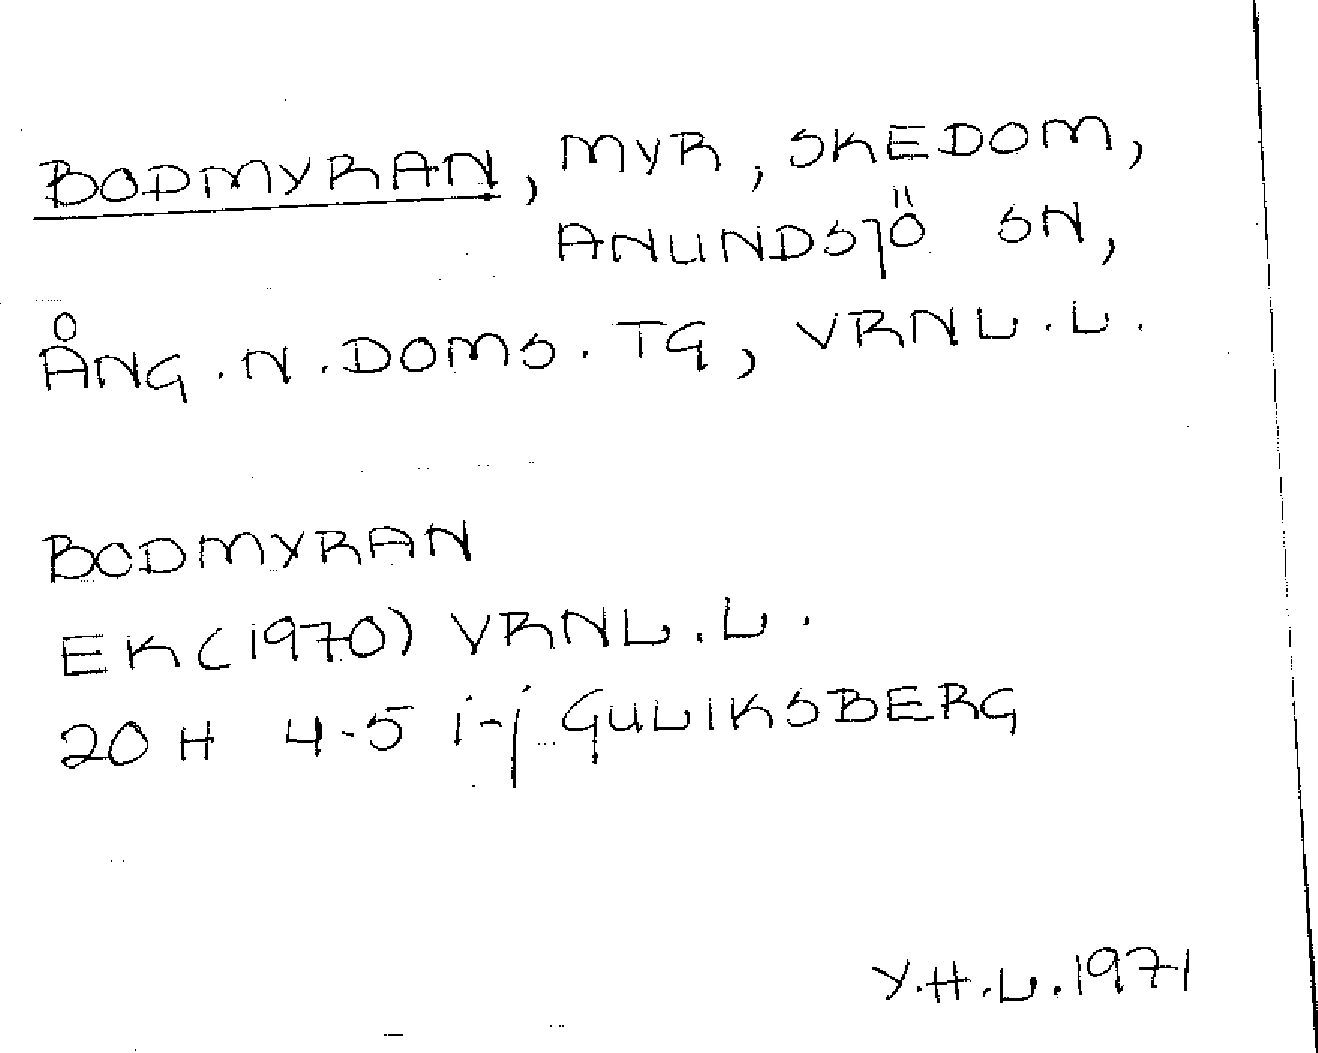 BODMYRAN, MYR, SKEDOM,
ANUNDSJÖ SN,
ÅNG. N. DOMS. TG, VRNL. L.
BODMYRAN
EK (1970) VRNL. L.
20 H 4-5 i-j GULIKSBERG
Y.H.L. 1971